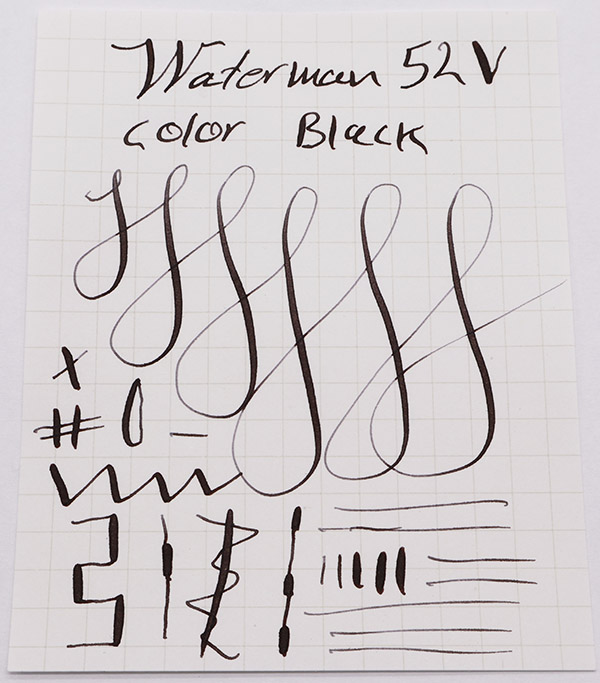 Waterman 52V
Color Black